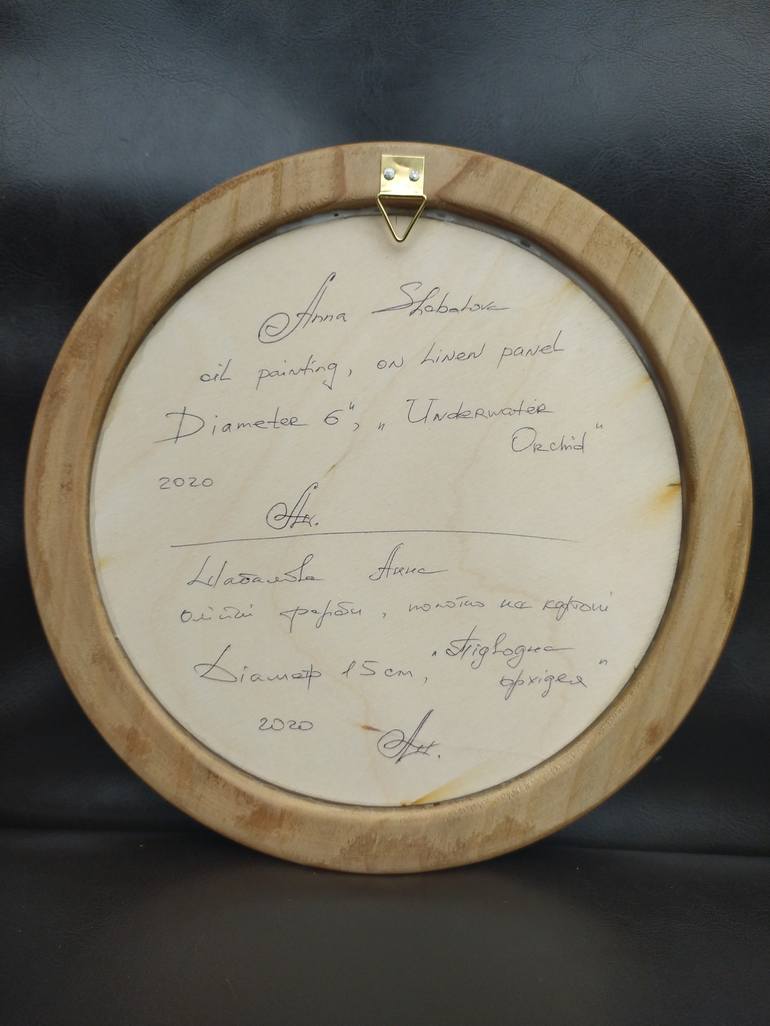 Anna Shabalova
oil painting, on Linen panel
Diameter 6", „Underwater
Orchid"
2020
Ан.
Шабалова Анна
олійні фарби, полотно на картоні
Діаметр 15 cm, „Підводна
орхідея"
2020
Ан.